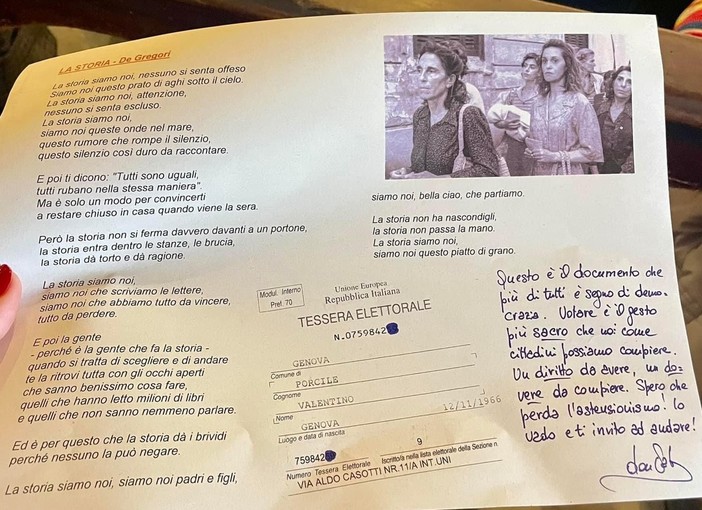 LA STORIA - De Gregori
La storia siamo noi, nessuno si senta offeso
Siamo noi questo prato di aghi sotto il cielo.
La storia siamo noi, attenzione,
nessuno si senta escluso.
La storia siamo noi,
siamo noi queste onde nel mare,
questo rumore che rompe il silenzio,
questo silenzio così duro da raccontare.
E poi ti dicono: "Tutti sono uguali,
tutti rubano nella stessa maniera".
Ma è solo un modo per convincerti
a restare chiuso in casa quando viene la sera.
Però la storia non si ferma davvero davanti a un portone,
la storia entra dentro le stanze, le brucia,
la storia dà torto e dà ragione.
La storia siamo noi,
siamo noi che scriviamo le lettere,
siamo noi che abbiamo tutto da vincere,
tutto da perdere.
E poi la gente
- perché è la gente che fa la storia -
quando si tratta di scegliere e di andare
te la ritrovi tutta con gli occhi aperti
che sanno benissimo cosa fare,
quelli che hanno letto milioni di libri
e quelli che non sanno nemmeno parlare.
Ed è per questo che la storia dà i brividi
perché nessuno la può negare.
La storia siamo noi, siamo noi padri e figli,
siamo noi, bella ciao, che partiamo.
La storia non ha nascondigli,
la storia non passa la mano.
La storia siamo noi,
siamo noi questo piatto di grano.
Modul. Interno
Prel 70
Unione Europea
Repubblica Italiana
TESSERA ELETTORALE
N.0759842
GENOVA
Comune di
PORCILE
Cognome
VALENTINO
Nome
GENOVA 12/11/1966
Luogo e data di nascita
759842 9
Numero Tessera Elettorale Iscritto/a nella lista elettorale della Sezione n
VIA ALDO CASOTTI NR.11/A INT.UNI
Questo è il documento che
più di tutti è segno di demo-
crazia. Votare è il gesto
più sacro che noi come
cittadini possiamo compiere.
Un diritto da avere, un do-
vere da compiere. Spero che
perda l'astensionismo! Io
vado e ti invito ad andare!